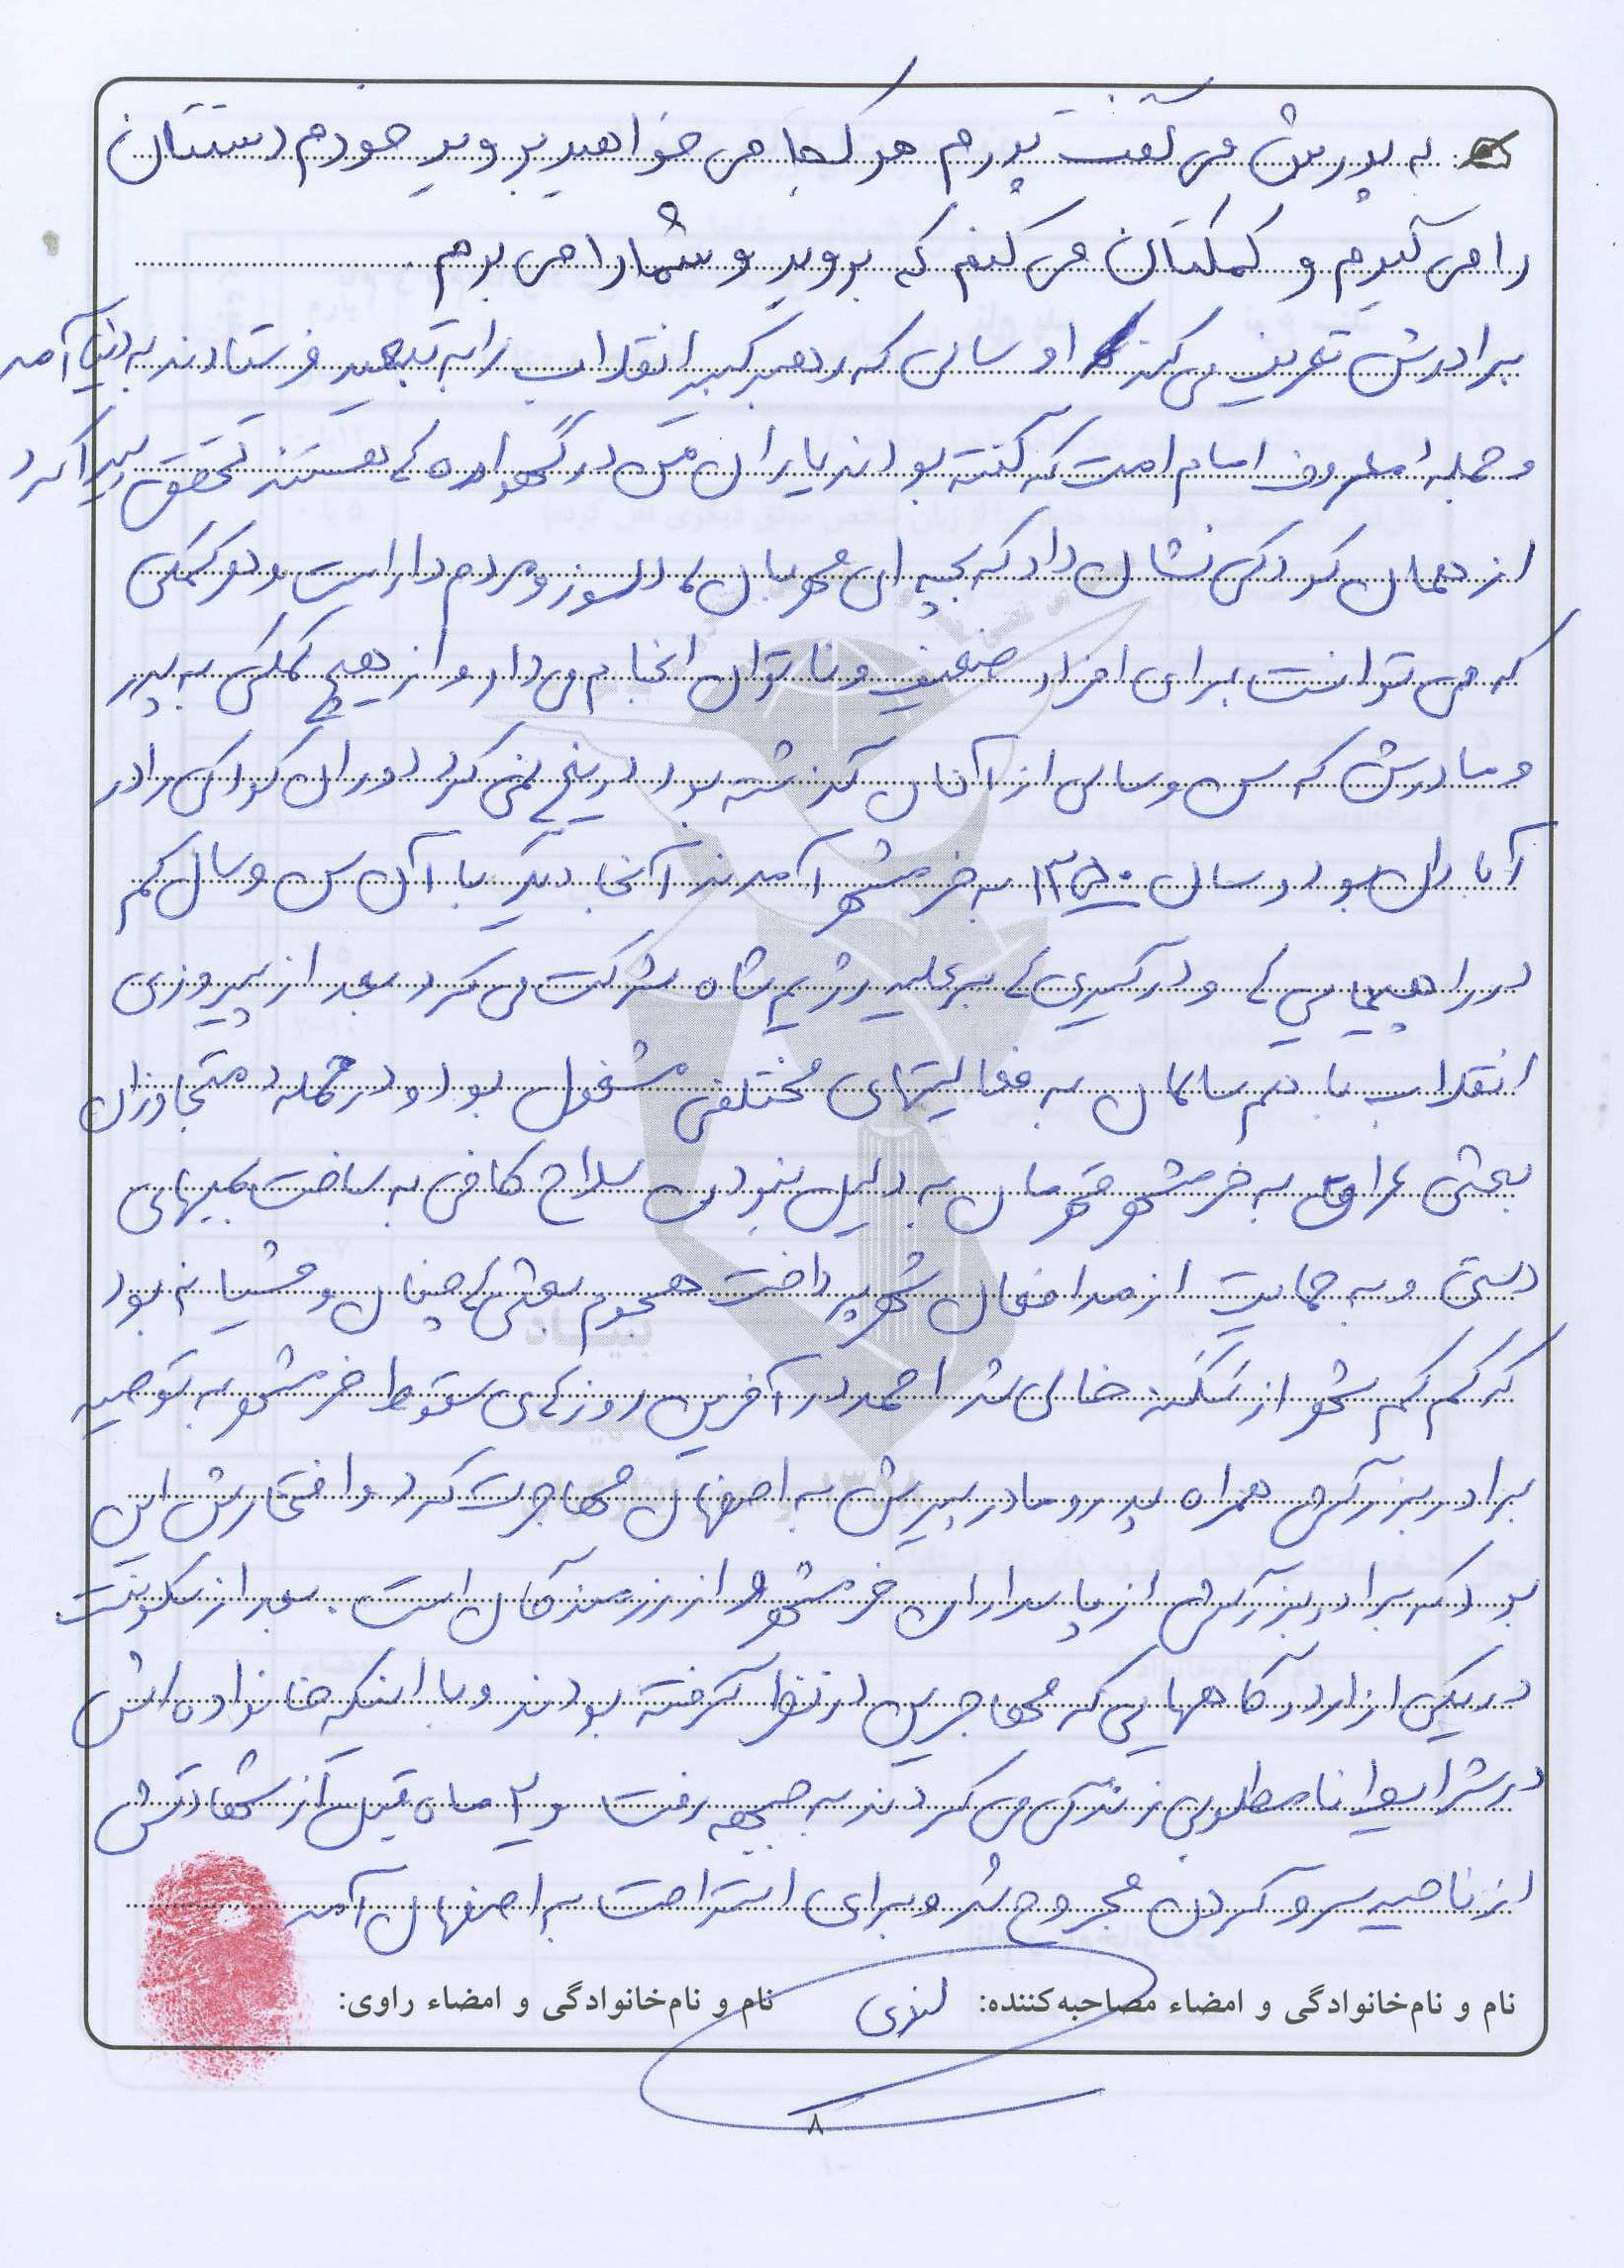 به پدرش می گفت پدرم هر کجا می خواهید بروید خودم دستتان
را می گیرم و کمکتان می کنم که بروید و شما را می برم
برادرش تعریف می کند او سالی که رهبر کبیر انقلاب را به تبعید فرستادند به دنیا آمد
و جمله معروف امام امت که گفته بودند یاران من در گهواره ها هستند تحقق پیدا کرد
از همان کودکی نشان داد که بچه ای مهربان دلسوز و مردم دار است و هر کمکی
که می توانست برای افراد ضعیف و ناتوان انجام می داد و از هیچ کمکی به پدر
و مادرش که سن و سالی از آنان گذشته بود دریغ نمی کرد دوران کودکی را در
آبادان بود و سال ۱۳۵۰ به خرمشهر آمدند آنجا دیگر با آن سن و سال کم
در راهپیمایی ها و درگیری ها بر علیه رژیم شاه شرکت می کرد بعد از پیروزی
انقلاب با هم سالمان به فعالیتهای مختلفی مشغول بود و در حمله متجاوزان
بعثی عراق به خرمشهر قهرمان به دلیل نبودن سلاح کافی به ساخت بمبهای
دستی و به حمایت از مدافعان شهر پرداخت هجوم بعثی ها چنان وحشیانه بود
که کم کم شهر از سکنه خالی شد احمد در آخرین روزهای سقوط خرمشهر به توصیه
برادر بزرگش همراه پدر و مادر پیرش به اصفهان مهاجرت کرد و افتخارش این
بود که برادر بزرگش از پاسداران خرمشهر و از رزمندگان است. بعد از سکونت
در یکی از اردوگاههایی که مهاجرین در نظر گرفته بودند و با اینکه خانواده اش
در شرایط نامطلوبی زندگی می کردند به جبهه رفت و ۲ ماه قبل از شهادتش
از ناحیه سر و گردن مجروح شد و برای استراحت به اصفهان آمد
نام و نام‌خانوادگی و امضاء مصاحبه‌کننده: نام و نام‌خانوادگی و امضاء راوی:
۸